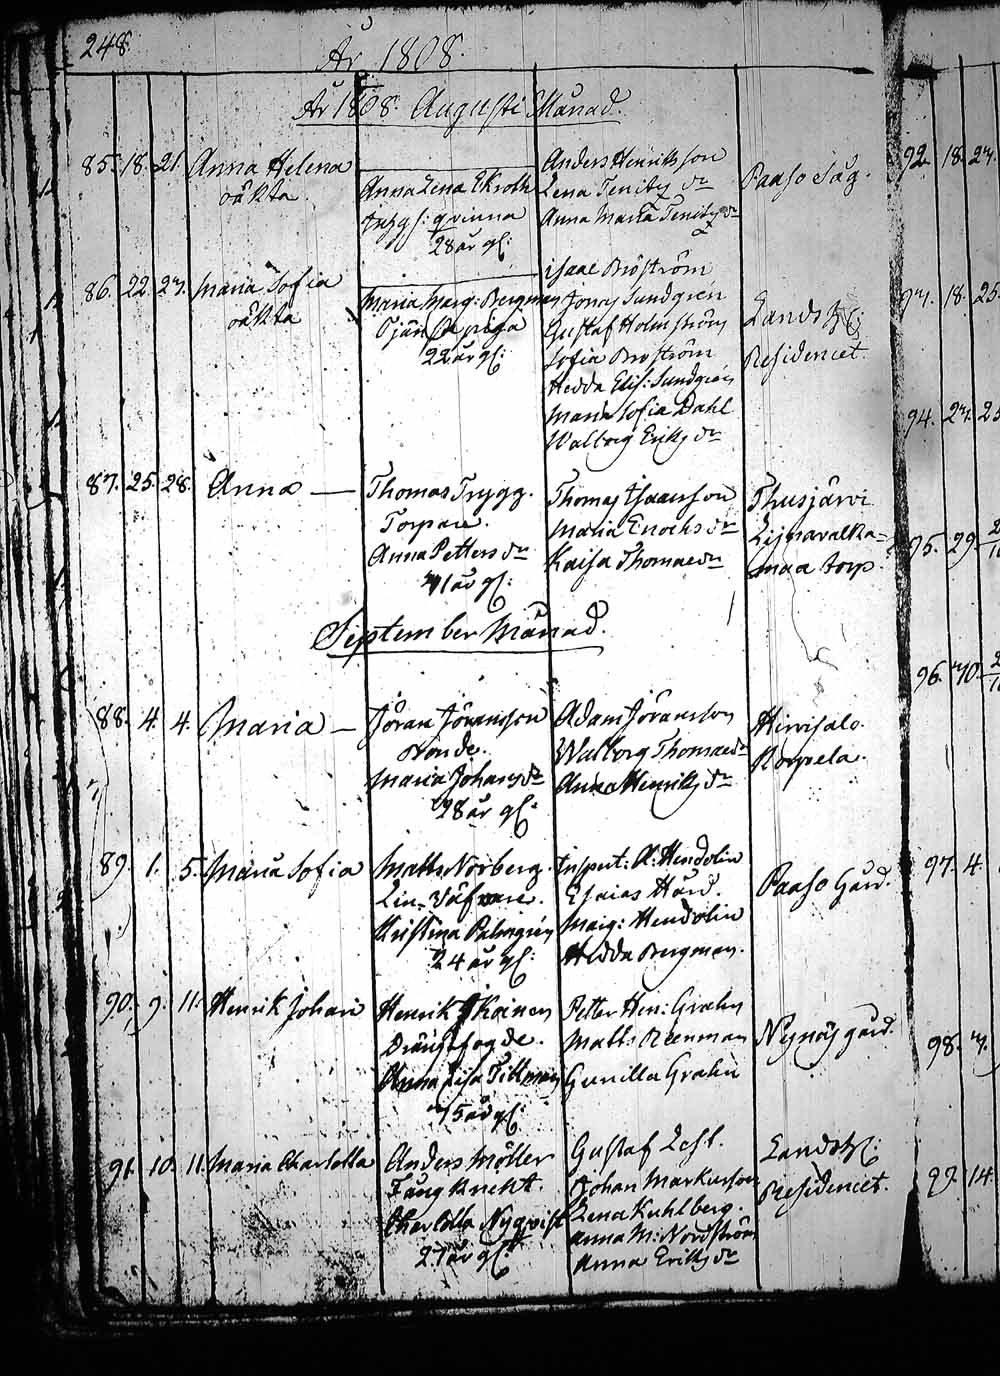 248.
År 1808.
År 1808. Augusti Månad.
85. 18. 21. Anna Helena
oäkta
Anna Lena Ekroth
Inhys: qvinna
28 år gl:
Anders Henriksson
Lena
Anna Maria
Paaso Såg.
86. 22. 23. Maria Sofia
oäkta
Maria Marg: Bergman
Tjänste piga
22 år gl:
Isaac Broström
Jonas Sundgren
Gustaf Holmström
Sofia Broström
Hedda Elis: Sundgren
Maria Sofia Dahl
Walborg Eriks dr
Lands
Residencet.
87. 25. 28. Anna —
Thomas Trygg.
Torpare.
Anna Petters dr
41 år gl:
Thomas Isaacsson
Maria Enochs dr
Kaisa Thomae dr
Thusjärvi
maa torp.
September Månad.
88. 4. 4. Maria —
Jöran Jöransson
Bonde.
Maria Johans dr
28 år gl:
Adam Jöransson
Walborg Thomae dr
Anna Henriks dr
Hirvisalo.
89. 1. 5. Maria Sofia
Matts Norberg.
Lin-Väfvare.
Kristina Palmgrén
24 år gl:
Inspect: A: Hendolin
Esaias Hård.
Marg: Hendolin
Hedda Bergman.
Paaso Gård.
90. 9. 11. Henrik Johan
Henrik Ikoinen
Drängsfogde.
Anna Lisa Tillman
35 år gl:
Petter Hen: Grahn
Matts Reenman
Gunilla Grahn
Nynäs gård.
91. 10. 11. Maria Charlotta
Anders Möller
Fångknekt.
Charlotta Nyqvist
27 år gl:
Gustaf
Johan Markusson
Lena Kuhlberg.
Anna M: Nordström
Anna Eriks dr
Lands
Residencet.
92. 18. 23.
93. 18. 25.
94. 23. 25
95. 29.
96. 30.
97. 4.
98. 3.
99. 14.